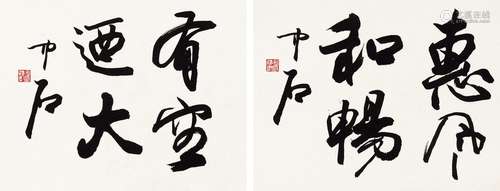 有容
迺大
中石
惠風
和暢
中石